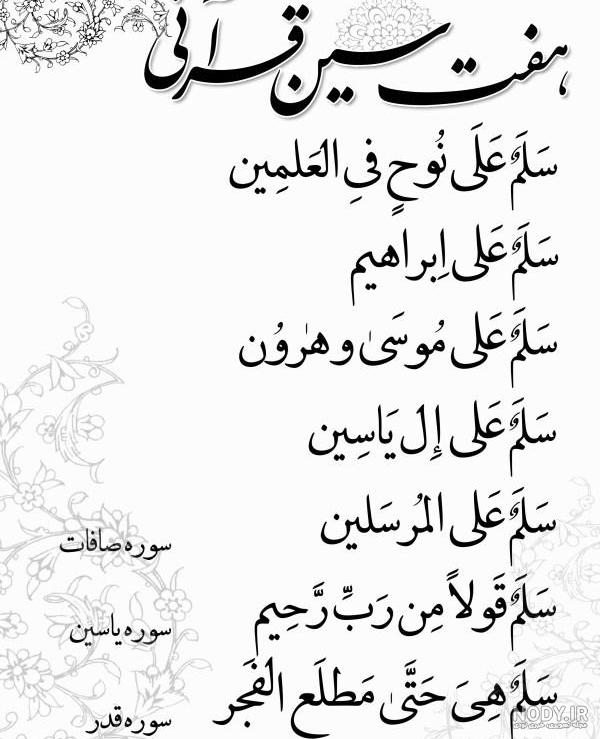 هفت سین قرآنی
سَلَمٌ عَلَی نُوحٍ فیِ العَلَمِین
سَلَمٌ عَلی اِبراهیم
سَلَمٌ عَلی مُوسَیٰ و هٰروُن
سَلَمٌ عَلی إِل یَاسِین
سَلَمٌ عَلی المُرسَلین
سوره صافات
سَلَمٌ قَولاً مِن رَبِّ رَّحِیم
سوره یاسین
سَلَمٌ هِیَ حَتَّیٰ مَطلَع الفَجر
سوره قدر
NODY.IR